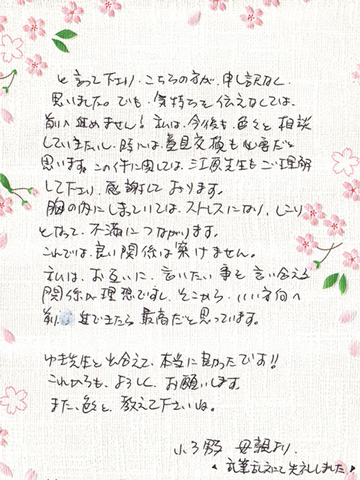 と言って下さり、こちらの方が、申し訳なく
思いました。でも、気持ちを伝えなくては、
前へ進めません! 私は、今後も、色々と相談
していきたいし、時には、意見交換も必要だと
思います。この件に関しては、江原先生もご理解
して下さり、感謝しております。
胸の内にしまっていては、ストレスになり、しこり
となって、不満につながります。
これでは、良い関係は築けません。
私は、お互いに、言いたい事を言い合える
関係が理想ですし、そこから、いい方向へ
前進できたら最高だと思っています。
ゆき先生と出会えて、本当に良かったです!!
これからも、よろしくお願いします。
また、色々と、教えて下さいね。
母親より。
乱筆乱文にて失礼しました